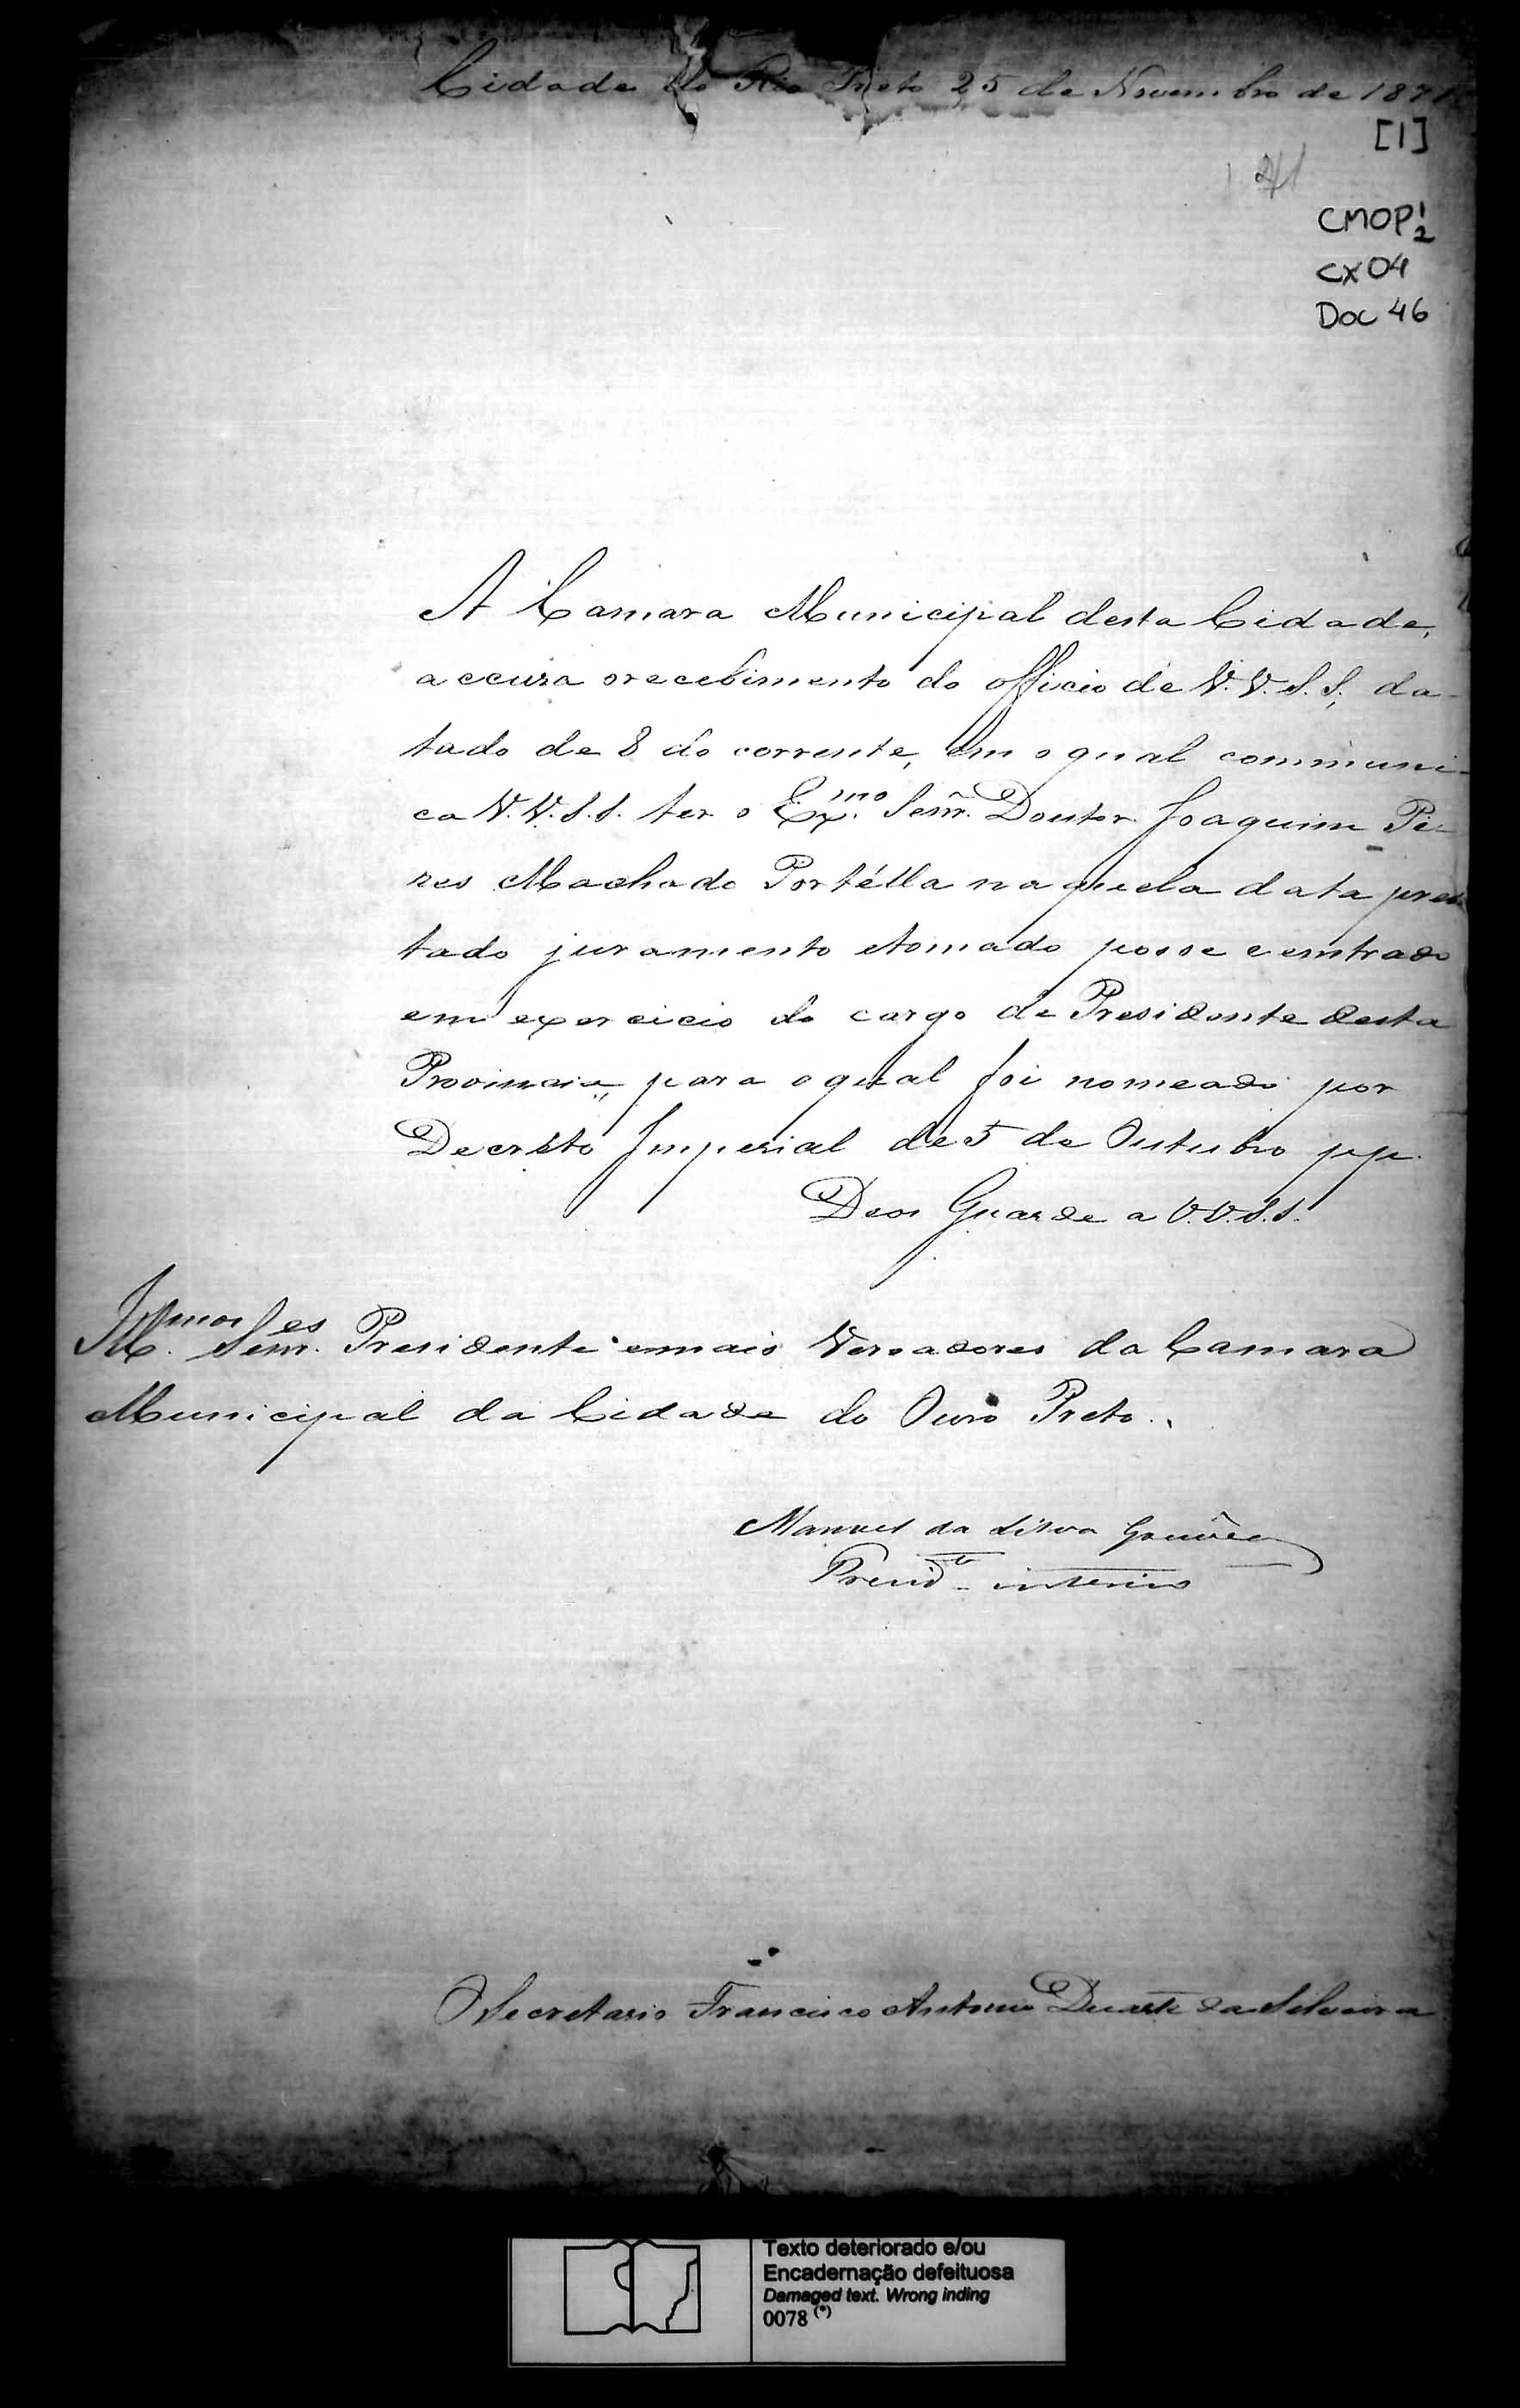 Cidade do Rio Preto 25 de Novembro de 1871
[1]
CMOP 1/2
CX04
Doc 46
A Camara Municipal desta Cidade,
accusa orecebimento do officio de V.V.S.S., da-
tado de 8 do corrente, em oqual communi-
ca V.V.S.S. ter o Ex.mo Senr. Doutor Joaquim Pi-
res Machado Portélla naquela data pres-
tado juramento etomado posse e entrado
em exercicio do cargo de Presidente desta
Provincia, para oqual foi nomeado por
Decreto Imperial de 5 de Outubro pp.
Deos Guarde a V.V.S.S.
Ill.mos Senr.es Presidente emais Vereadores da Camara
Municipal da Cidade do Ouro Preto.
Manoel da Silva
Presid.te interino
O Secretario Francisco Antonio Duarte da Silveira
Texto deteriorado e/ou
Encadernação defeituosa
Damaged text. Wrong inding
0078 (*)